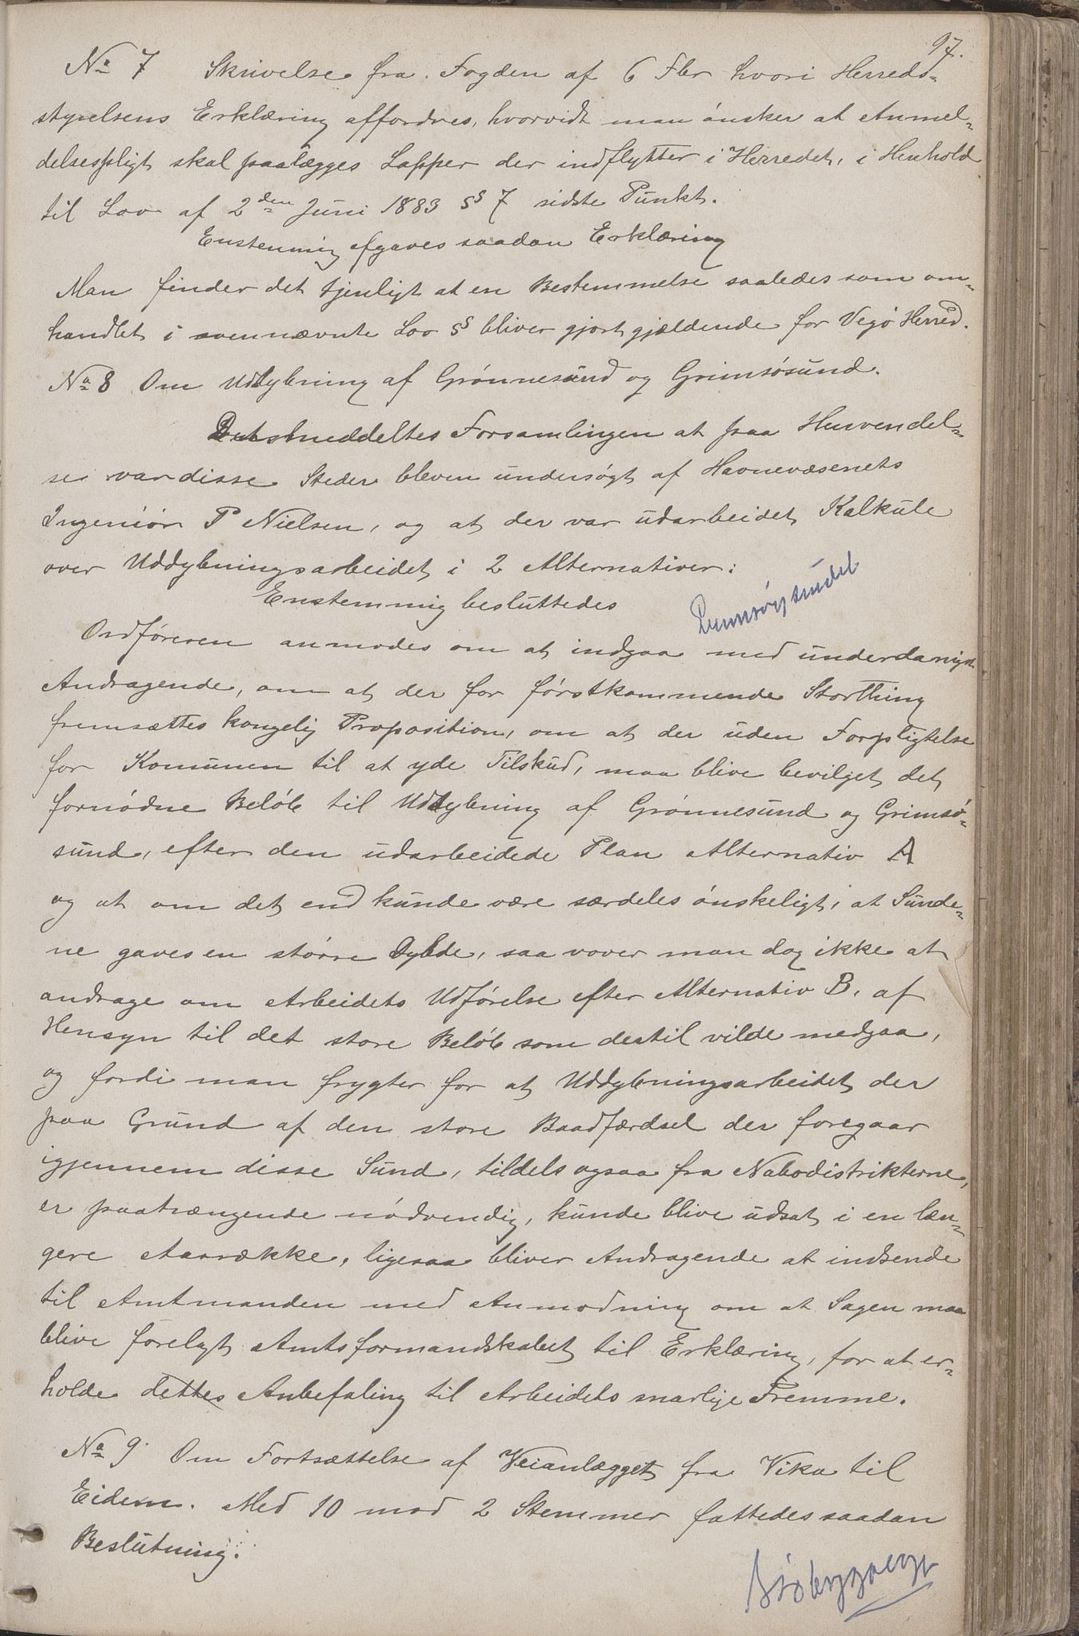 97.
No 7 Skrivelse fra Fogden af 6 Fbr hvori Herreds-
styrelsens Erklæring affordres, hvorvidt man ønsker at Anmel-
delsespligt skal paalægges Lapper der indflytter i Herredet, i Henhold
til Lov af 2den Juni 1883 §§ 7 sidste Punkt.
Enstemmig afgaves saadan Erklæring
Man finder det tjenligt at en Bestemmelse saaledes som om-
handlet i ovennævnte Lov § bliver gjort gjældende for Vegø Herred.
No 8 Om Uddybning af Grønnesund og Grimsøsund.
Det meddeltes Forsamlingen at paa Henvendel-
se var disse Steder bleven undersøgt af Havnevæsenets
Ingeniør P Nielsen, og at der var udarbeidet Kalkule
over Uddybningsarbeidet i 2 Alternativer:
Enstemmig besluttedes
Ordføreren anmodes om at indgaa med underdanigst
Andragende, om at der for førstkommende Storthing
fremsættes kongelig Proposition, om at der uden Forpligtelse
for Komunen til at yde Tilskud, maa blive bevilget det
fornødne Beløb til Uddybning af Grønnesund og Grimsø-
sund, efter den udarbeidede Plan Alternativ A
og at om det end kunde være særdeles ønskeligt, at Sunde-
ne gaves en større Dybde, saa vover man dog ikke at
andrage om Arbeidets Udførelse efter Alternativ B. af
Hensyn til det store Beløb som dertil vilde medgaa,
og fordi man frygter for at Uddybningsarbeidet der
paa Grund af den store Baadfærdsel der foregaar
igjennem disse Sund, tildels ogsaa fra Nabodistrikterne,
er paatrængende nødvendig, kunde blive udsat i en læn-
gere Aarrække, ligesaa bliver Andragende at indsende
til Amtmanden med Anmodning om at Sagen maa
blive forelagt Amtsformandskabet til Erklæring, for at er-
holde dettes Anbefaling til Arbeidets snarlige Fremme.
No 9 Om Fortsættelse af Veianlægget fra Vika til
Eidem. Med 10 mod 2 Stemmer fattedes saadan
Beslutning: